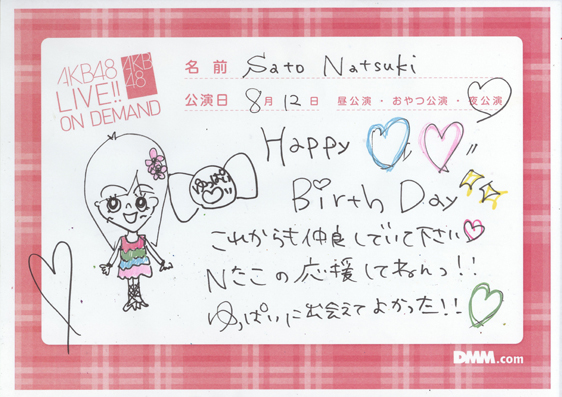 AKB48
LIVE!!
ON DEMAND
AKB
48
名前 Sato Natsuki
公演日 8月12日 昼公演・おやつ公演・夜公演
Happy
Birth Day
ゆっぱい
これからも仲良していて下さい
Nたこの応援してねんっ!!
ゆっぱいに出会えてよかった!!
DMM.com